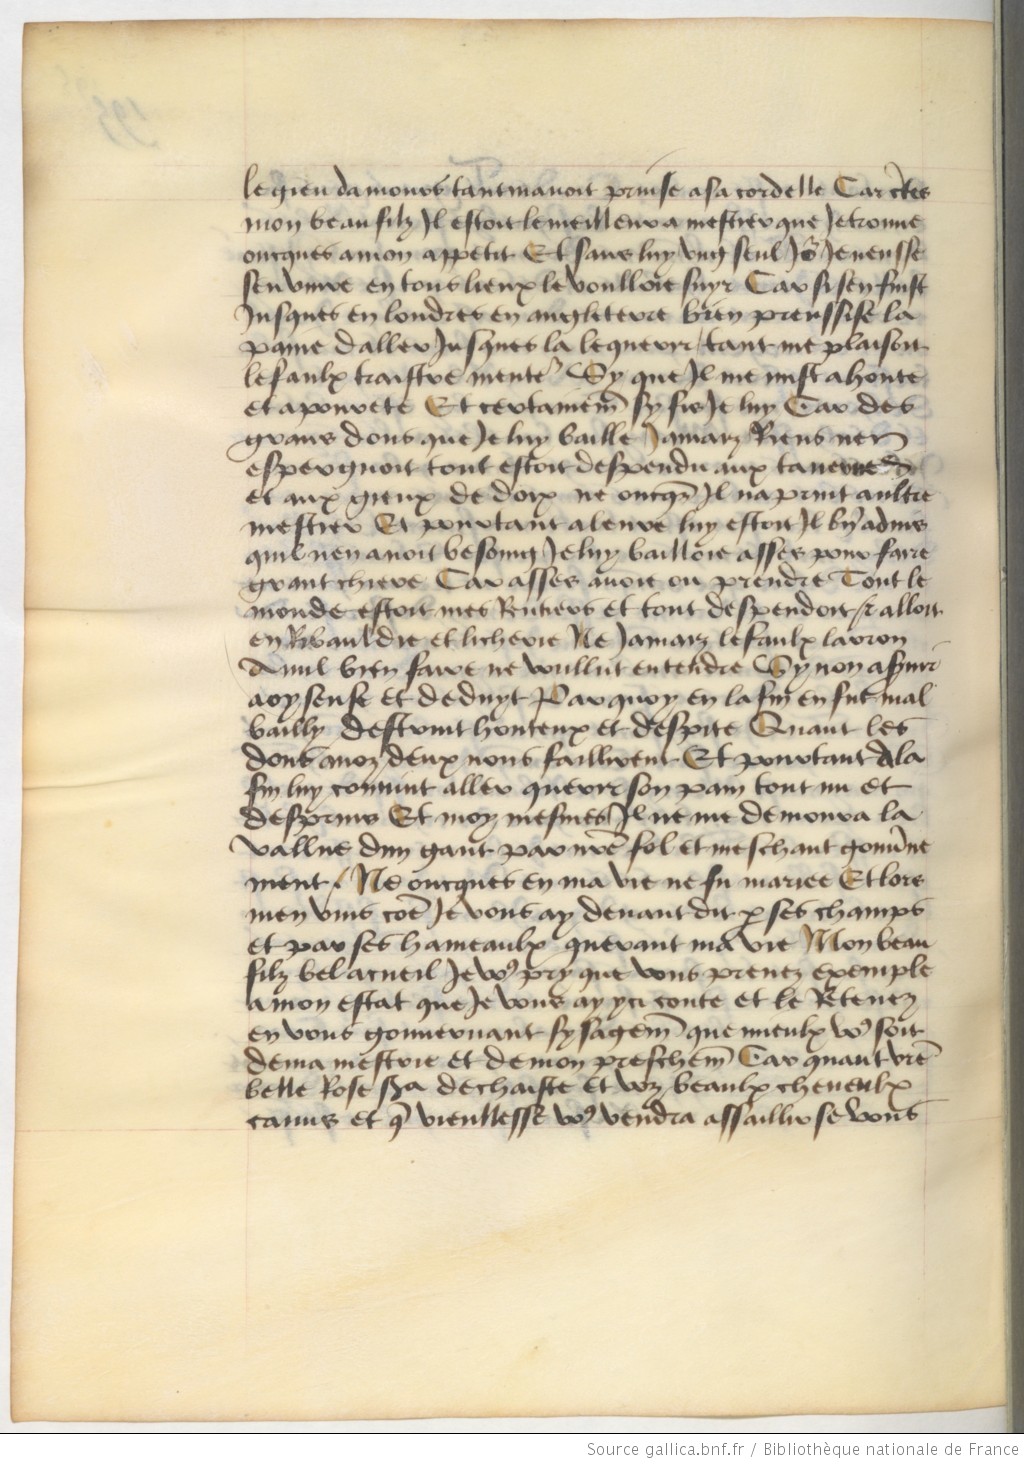 le gieu damours tant mavoit prinse a sa cordelle Car c̃tes
mon beau filz Il estoit le meilleur a mestier que Je trouve
oncques a mon appetit Et sans luy ung seul Jo᷑ Je neusse
sceu vivre en tous lieux le voulloie suyr Car si sen fuist
Jusques en londres en angleterre bien preusse la
paine daller Jusques la le querir / tant me plaisoit
le faulx traistre mente᷑ Sy que Il me mist a honte
et a povrete Et certainem̃ sy fis Je luy Car des
grans dons que Je luy baille Jamaiz Riens nen
espergnoit tout estoit despendu aux tavernes
et aux gieux de doix ne oncq̃ Il na print aultre
mestier Et pourtant a leure luy estoit Il bñ advis
quil nen avoit besoing Je luy bailloie asses pour faire
grant chiere Car asses avoie ou prendre Tout le
monde estoit mes Rentiers et tout despendoit / et alloit
en Ribauldie et licherie Ne Jamaiz le faulx larron
A nul bien faire ne voullut entendre Sy non a
a oyseuse et deduyt Par quoy en la fin en fut mal
bailly destruit honteux et despite Quant les
dons a noz deux nous faillirent Et pourtant A la
fin luy convint aller querir son pain tout nu et
desprins Et moy mesmes Il ne me demoura la
vallue dun gant par nr̃e fol et meschant gouv̾ne
ment / Ne oncques en ma vie ne fu mariee Et lors
men vins coẽ Je vous ay devant dit p̱ ses champs
et par ses hameaulx querant ma vie Mon beau
filz bel acueil Je vo᷒ pry que vous prenez exemple
a mon estat que Je vous ay yci conte et le Retenez
en vous gouvernant sy sagem̃ que mieulx vo᷒ soit
de ma mestrie et de mon preschem̃ Car quant vr̃e
belle Rose sera dechaiste et voz beaulx cheveulx
canus et q̃ vieillesse vo᷒ vendra assaillir se vous